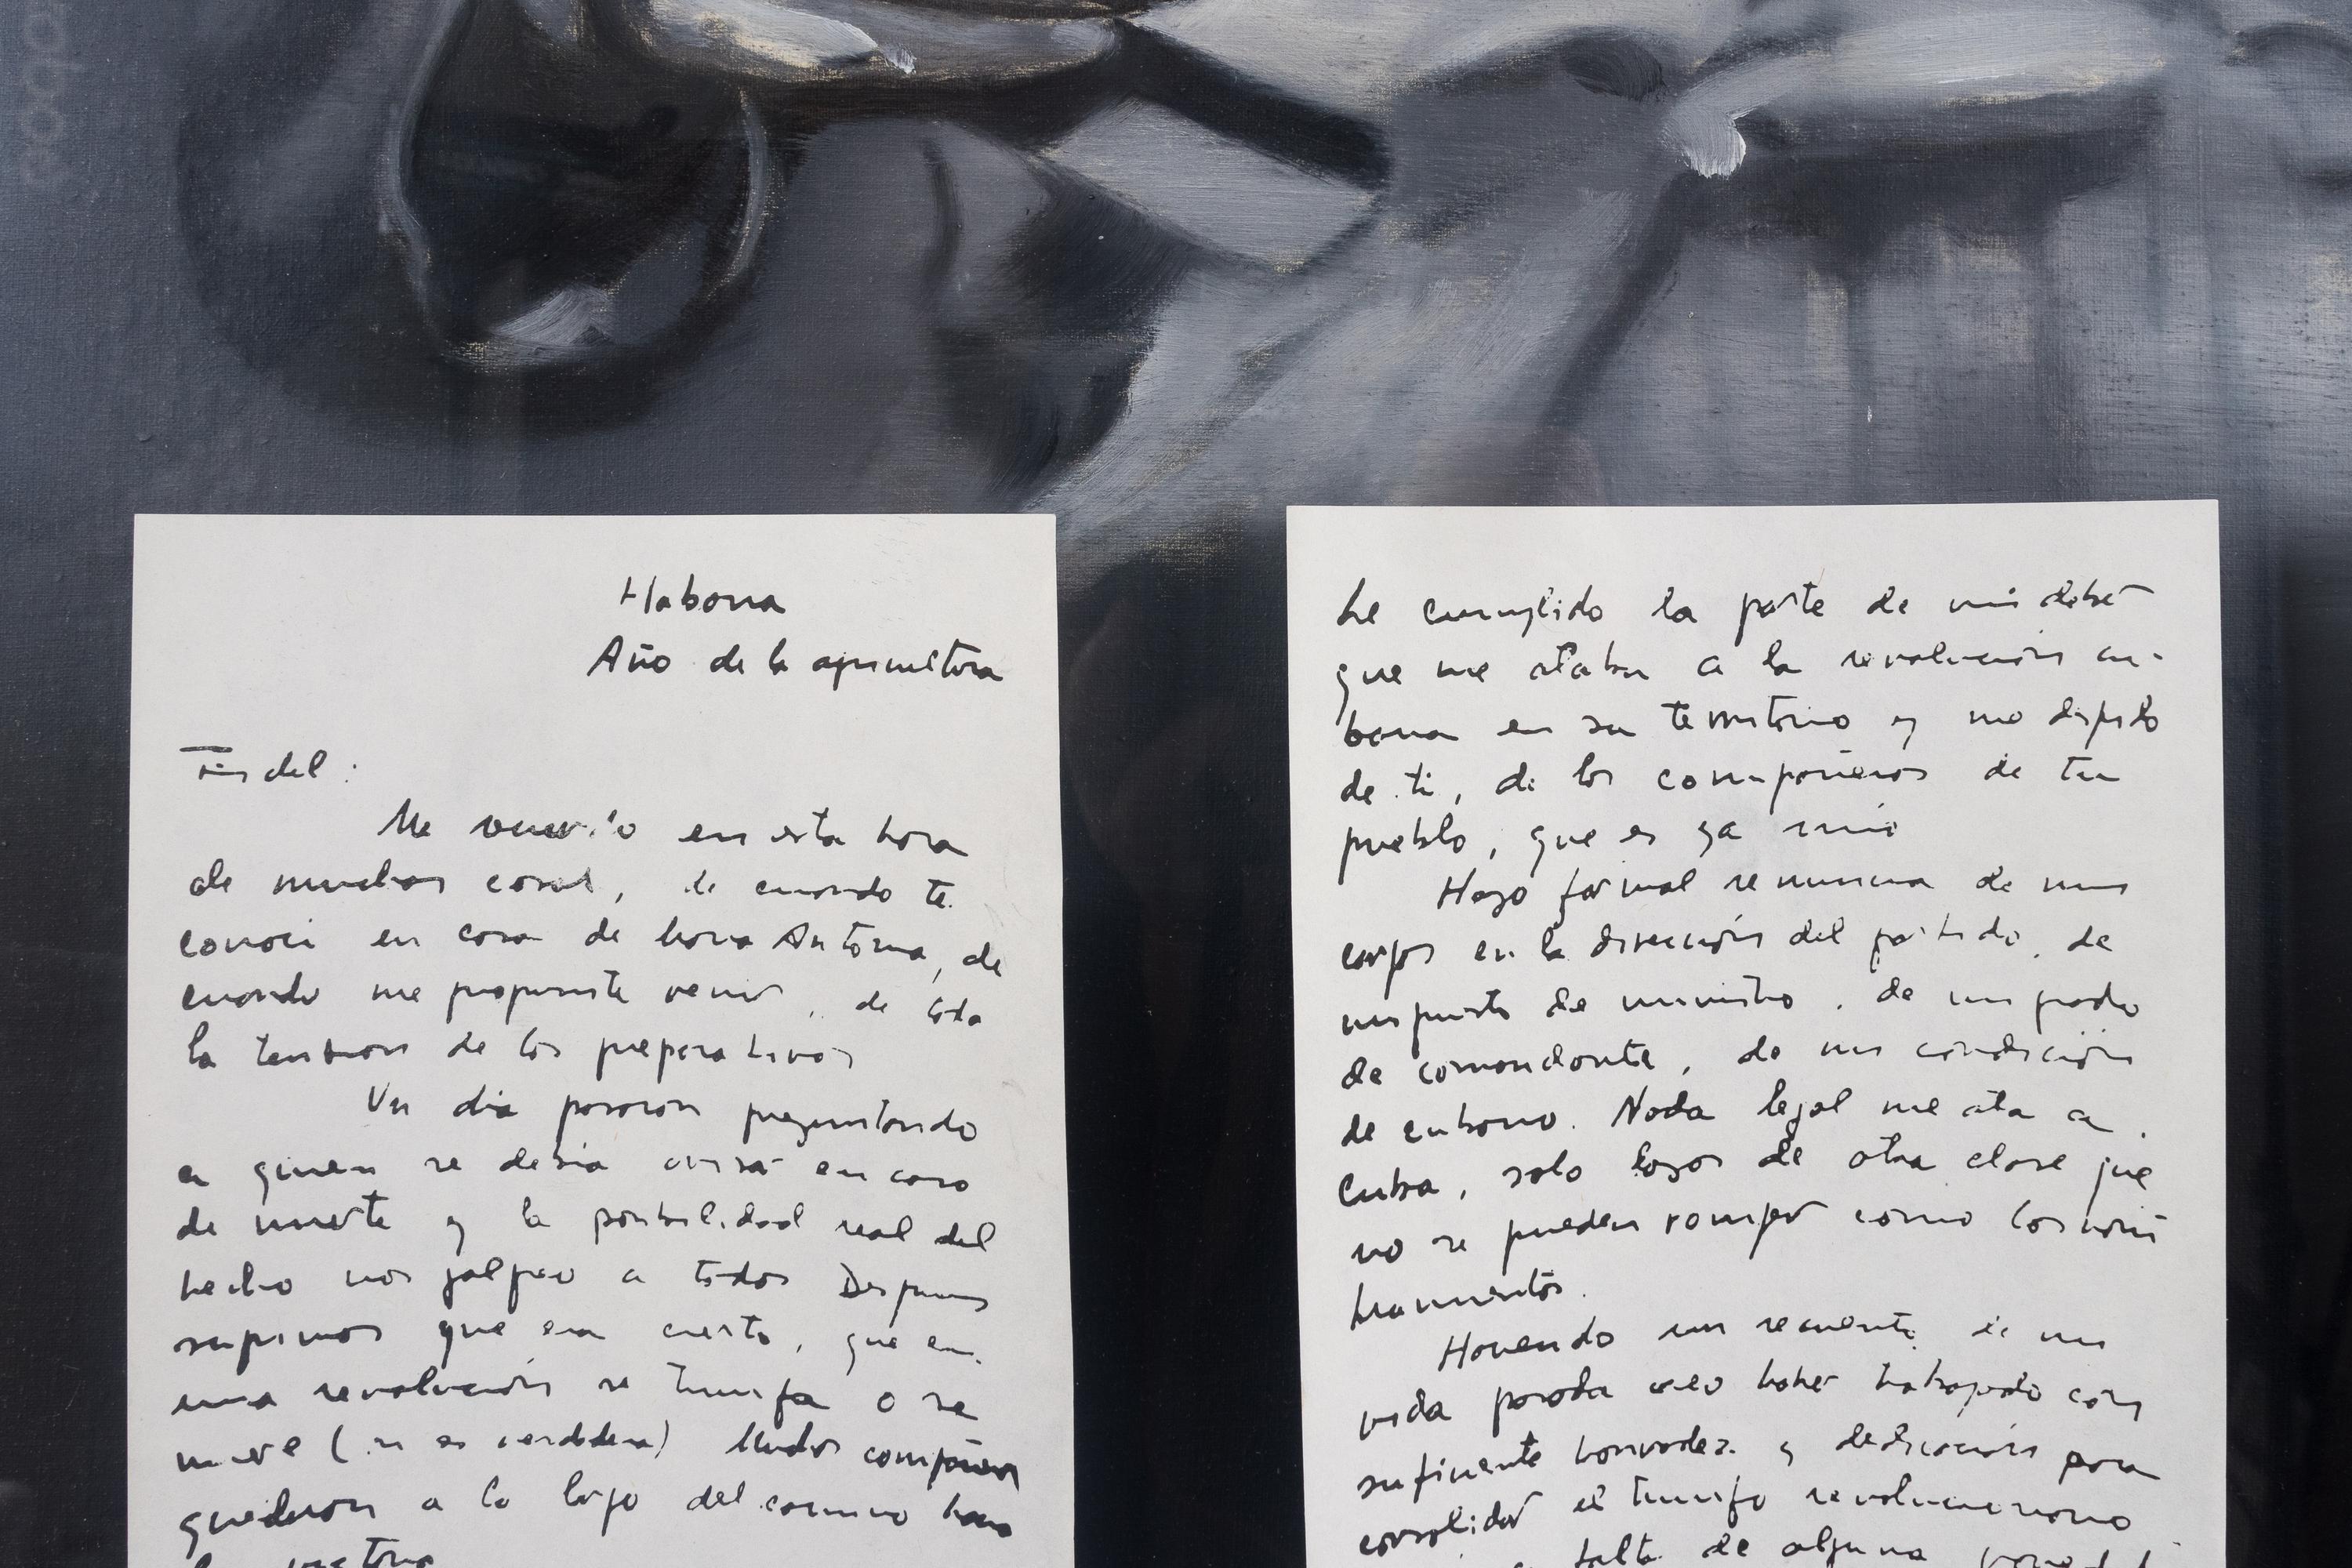 Habana
Año de la agricultura
Fidel:
Me recuerdo en esta hora
de muchas cosas, de cuando te
conocí en casa de María Antonia, de
cuando me propusiste venir, de toda
la tensión de los preparativos
Un día pasaron preguntando
a quien se debía avisar en caso
de muerte y la posibilidad real del
hecho nos golpeó a todos Después
supimos que era cierto, que en
una revolución se triunfa o se
muere (si es verdadera) Muchos compañeros
quedaron a lo largo del camino hacia
la victoria
he cumplido la parte de mi deber
que me ataba a la revolución cu-
bana en su territorio y me despido
de ti, de los compañeros de tu
pueblo, que es ya mío
Hago formal renuncia de mis
cargos en la dirección del partido, de
mi puesto de ministro, de mi grado
de comandante, de mi condición
de cubano. Nada legal me ata a
Cuba, solo lazos de otra clase que
no se pueden romper como los nom
bramientos.
Haciendo un recuento de mi
vida pasada creo haber trabajado con
suficiente honradez y dedicación para
consolidar el triunfo revolucionario
falta de alguna